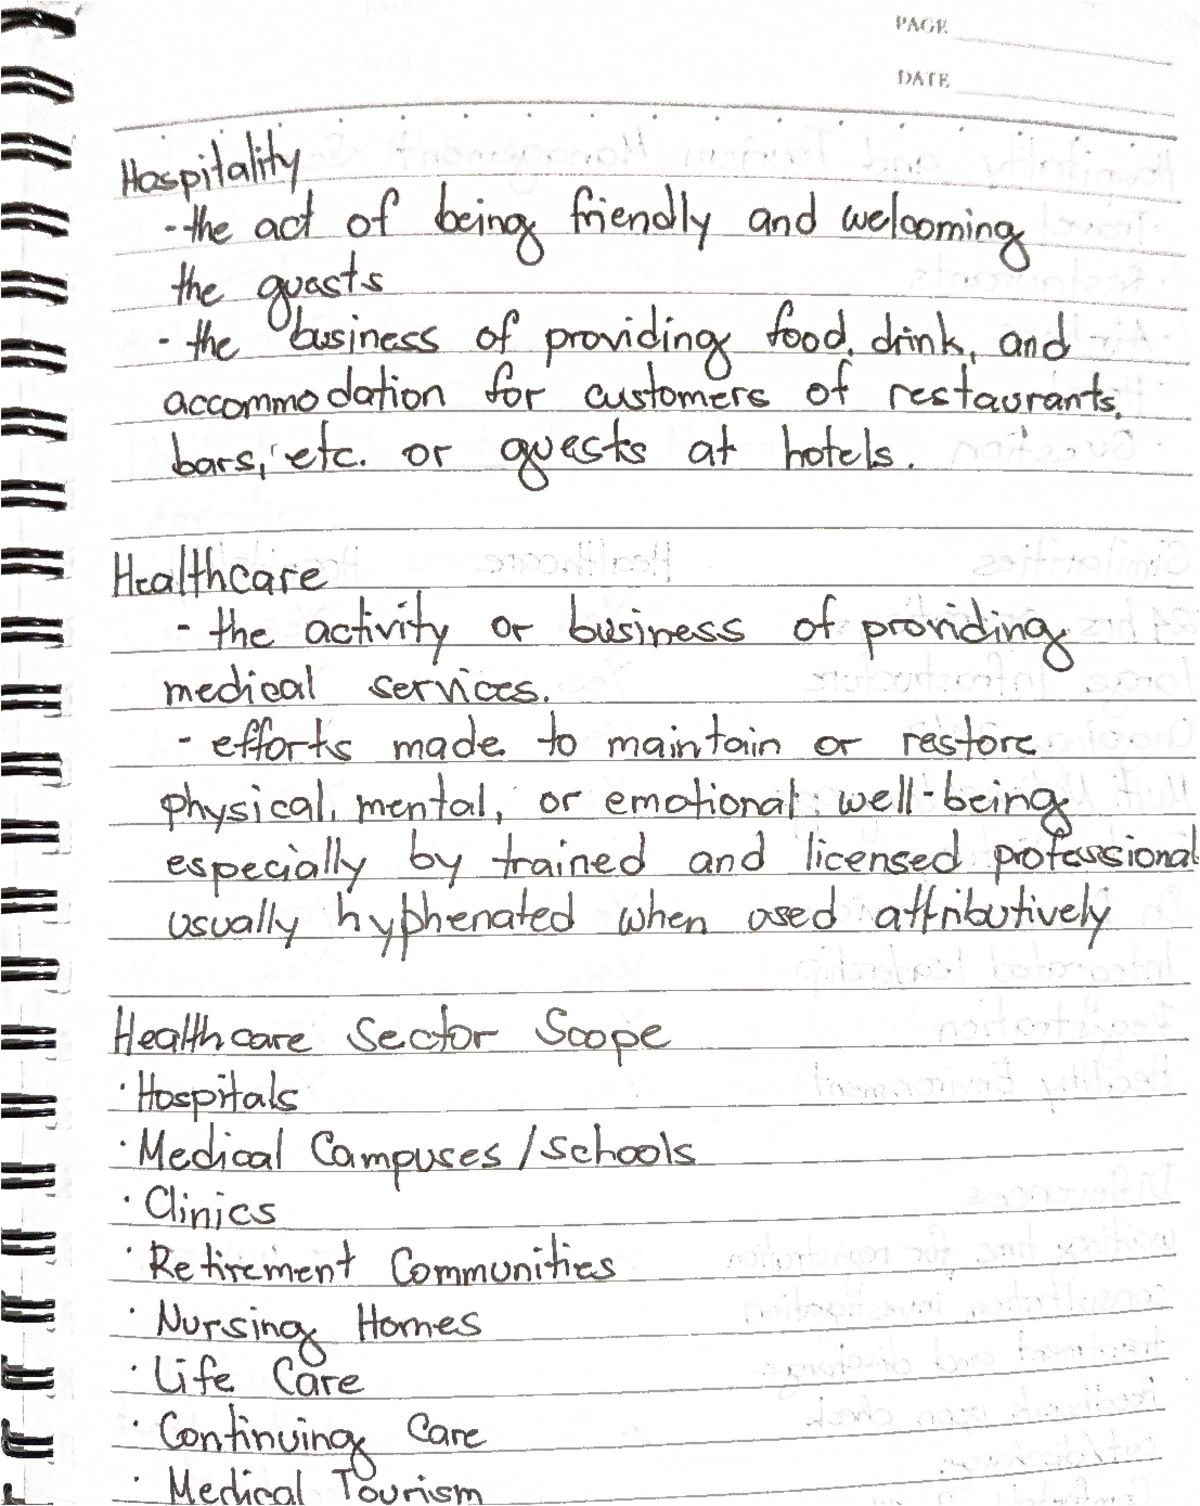 PAGE
DATE
Hospitality
- the act of being friendly and welcoming
the guests
- the business of providing food, drink, and
accommodation for customers of restaurants,
bars, etc. or guests at hotels.
Healthcare
- the activity or business of providing
medical services.
- efforts made to maintain or restore
physical, mental, or emotional well-being
especially by trained and licensed professional
usually hyphenated when used attributively
Healthcare Sector Scope
· Hospitals
· Medical Campuses / Schools
· Clinics
· Retirement Communities
· Nursing Homes
· Life Care
· Continuing Care
· Medical Tourism